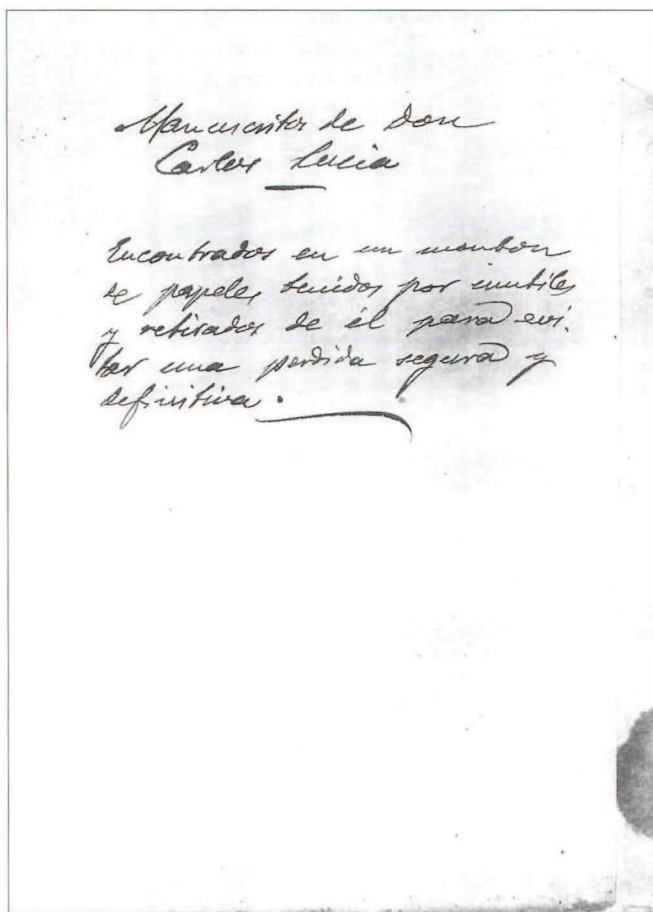 Manuscritos de Don
Carlos Lucia
Encontrados en un monton
de papeles tenidos por inutiles
y retirados de él para evi-
tar una perdida segura y
definitiva.